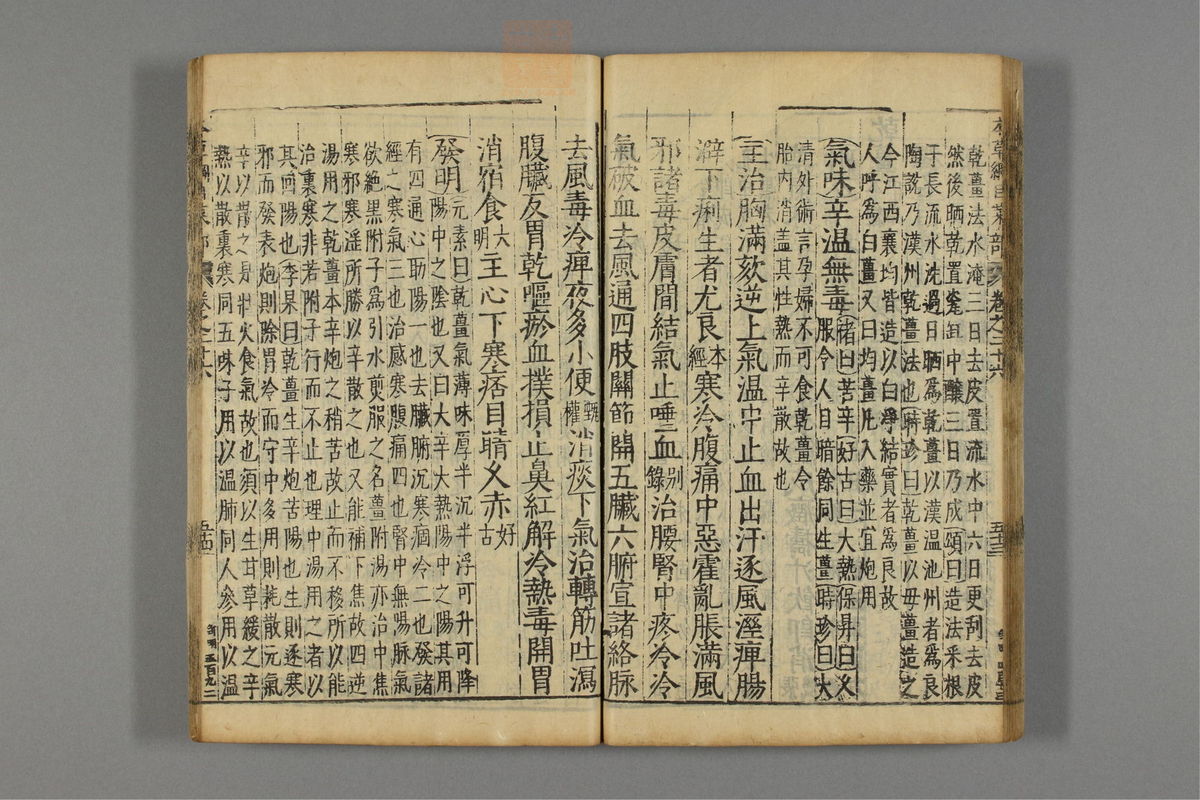 本草綱目菜部 卷之二十六 五十三
乾薑法水淹三日去皮置流水中六日更刮去皮
然後晒乾置瓷缸中釀三日乃成頌曰造法采根
于長流水洗過日晒爲乾薑以漢温池州者爲良
陶說乃漢州乾薑法也時珍曰乾薑以母薑造之
今江西襄均皆造以白淨結實者爲良故
人呼爲白薑又曰均薑凡入藥並宜炮用
氣味辛温無毒褚曰苦辛好古曰大熱保昇曰久
服令人目暗餘同生薑時珍曰太
清外術言孕婦不可食乾薑令
胎内消盖其性熱而辛散故也
主治胸滿欬逆上氣温中止血出汗逐風溼痺腸
澼下痢生者尤良本經寒冷腹痛中惡霍亂脹滿風
邪諸毒皮膚間結氣止唾血别錄治腰腎中疼冷冷
氣破血去風通四肢關節開五臟六腑宣諸絡脉
去風毒冷痺夜多小便甄權消痰下氣治轉筋吐瀉
腹臟反胃乾嘔瘀血撲損止鼻紅解冷熱毒開胃
消宿食大明主心下寒痞目睛乆赤好古
發明元素曰乾薑氣薄味厚半沉半浮可升可降
陽中之陰也又曰大辛大熱陽中之陽其用
有四通心助陽一也去臟腑沉寒痼冷二也發諸
經之寒氣三也治感寒腹痛四也腎中無陽脉氣
欲絶黑附子爲引水煎服之名薑附湯亦治中焦
寒邪寒淫所勝以辛散之也又能補下焦故四逆
湯用之乾薑本辛炮之稍苦故止而不移所以能
治裏寒非若附子行而不止也理中湯用之者以
其回陽也李杲曰乾薑生辛炮苦陽也生則逐寒
邪而發表炮則除胃冷而守中多用則耗散元氣
辛以散之是壯火食氣故也須以生甘草緩之辛
熱以散裏寒同五味子用以温肺同人參用以温
本草綱目菜部 卷之二十六 五十四